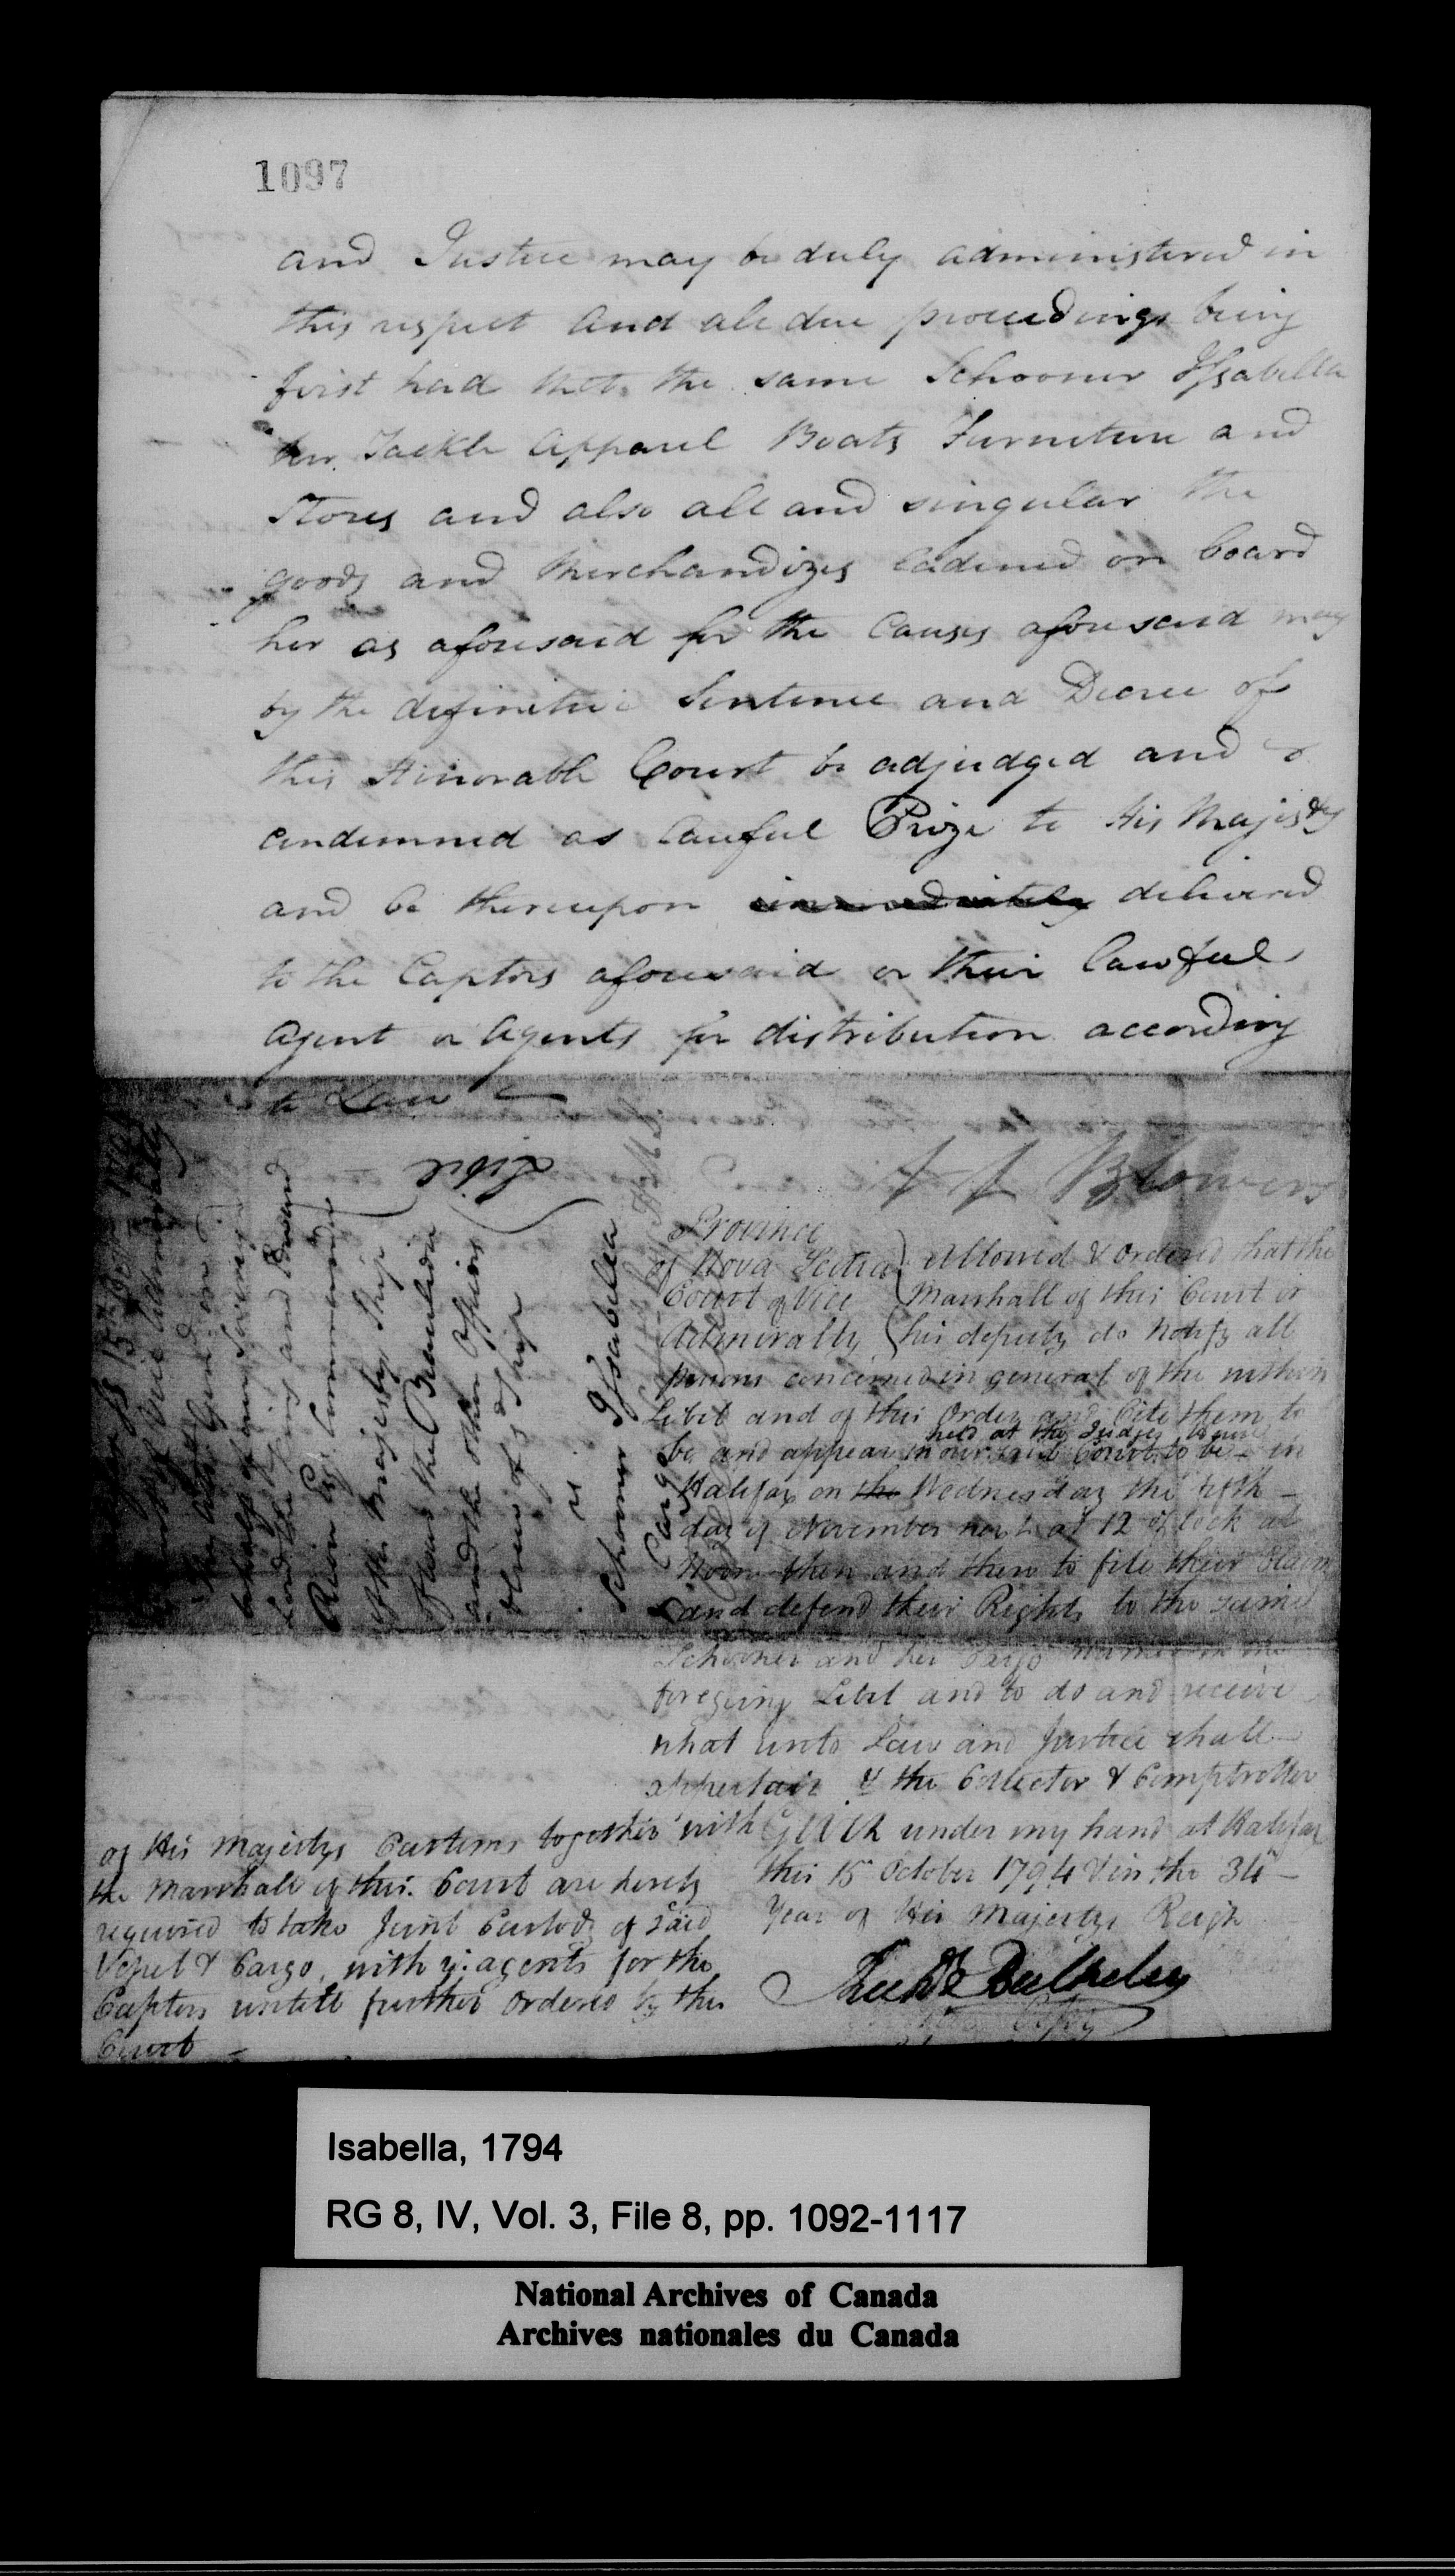 1097
and Justice may be duly administered in
this respect and all due proceedings being
first had that the same Schooner Issabella
her Tackle Apparel Boats Furniture and
Stores and also all and singular the
goods and Merchandizes ladened on board
her as aforesaid for the Causes aforesaid may
by the definitive Sentence and Decree of
this Honorable Court be adjudged and
condemned as lawful Prize to His Majesty
and be thereupon immediately delivered
to the Captors aforesaid or their lawful
agent or agents for distribution according
to Law
S S Blowers
Libel
15th Octr 1794
Court of Vice Admiralty
The Atty Genl on
behalf of our Sovereign
Lord the King and
Esqr Commander
of His Majestys Ship
and the other Officers
of sd Ship
vs
Schooner Issabella
& Cargo
Province
of Nova Scotia
Court of Vice
Admiralty
Allowed & Ordered that the
Marshall of this Court or
his deputy do Notify all
persons concerned in general of the within
Libel and of this Order and Cite them to
be and appear in our said Court to be held at the Judges House in
Halifax on the Wednesday the fifth
day of November next at 12 oClock at
Noon then and there to file their Claim
and defend their Rights to the same
Schooner and her Cargo named in the
foregoing Libel and to do and receive
what unto Law and Justice shall
appertain & the Collector & Comptroller
of His Majestys Customs together with
the Marshall of this Court are hereby
required to take Joint Custody of said
Vessel & Cargo, with ye agents for the
Captors untill further Ordered by this
Court
GIVEN under my hand at Halifax
this 15th October 1794 & in the 34th
Year of His Majestys Reign
Richd Bulkeley
Isabella, 1794
RG 8, IV, Vol. 3, File 8, pp. 1092-1117
National Archives of Canada
Archives nationales du Canada